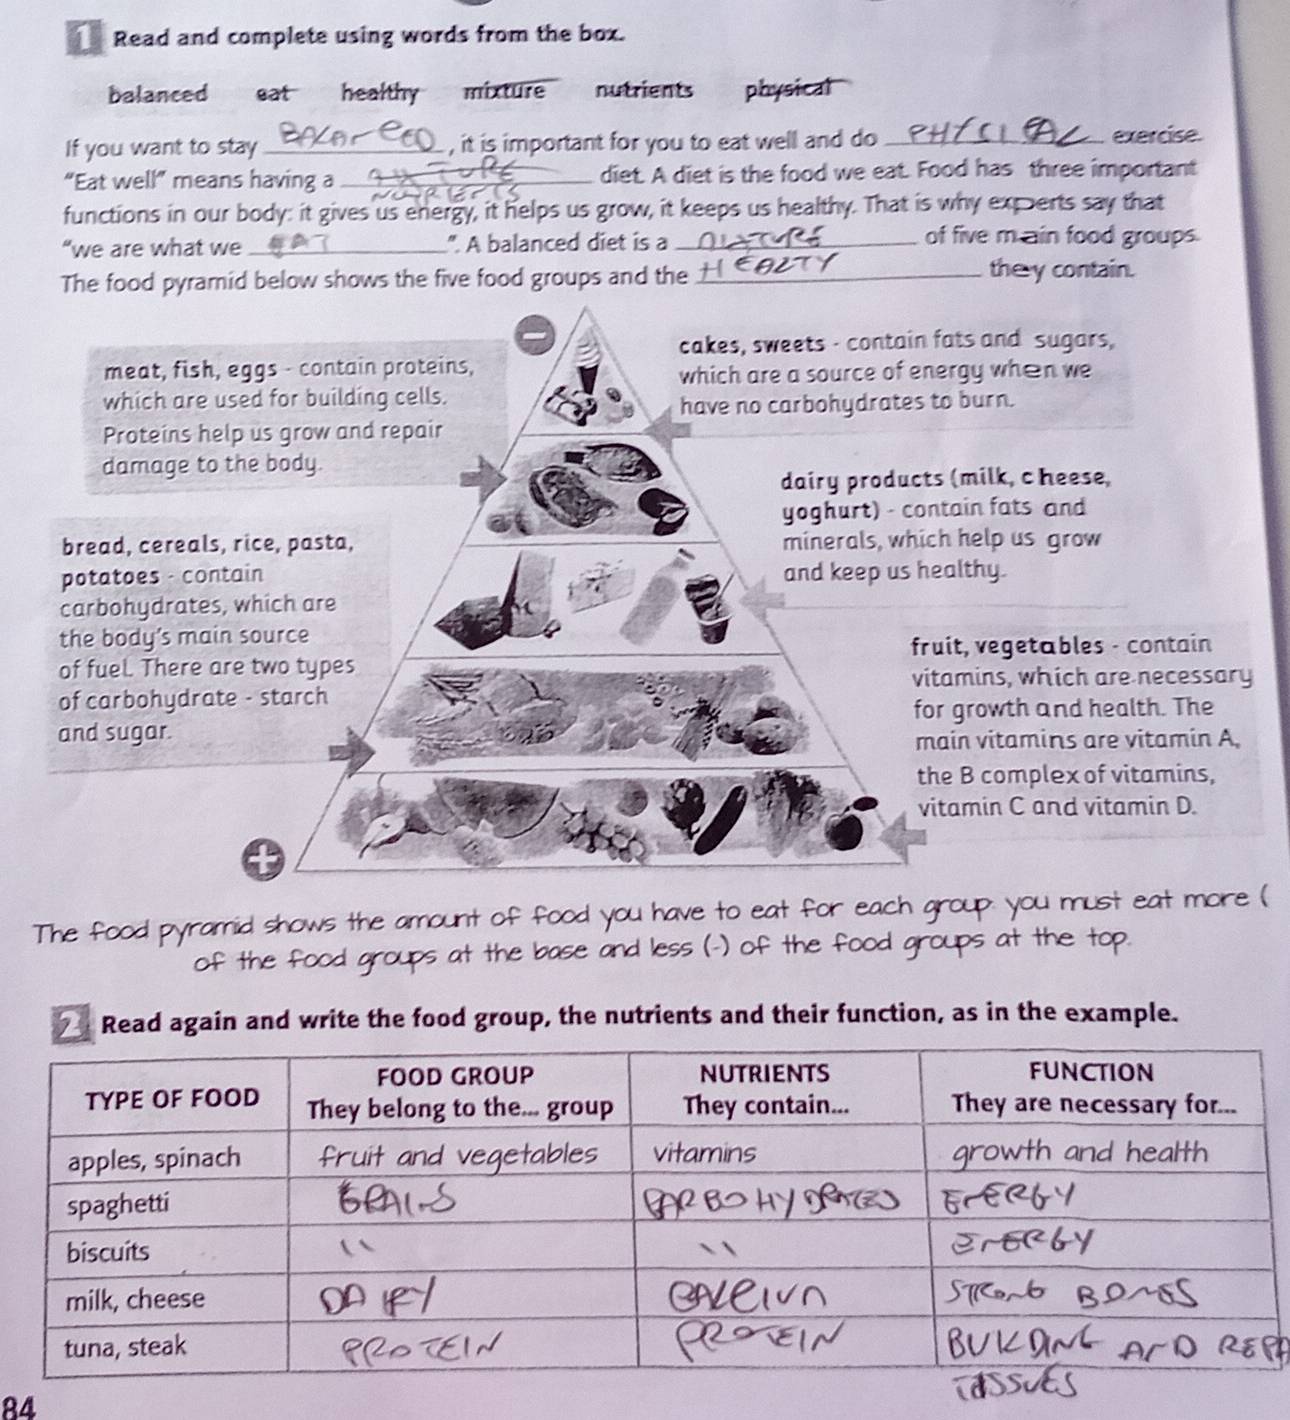 1 Read and complete using words from the box.
balanced eat healthy mixture nutrients physical
If you want to stay BALANCED, it is important for you to eat well and do PHYSICAL exercise.
"Eat well" means having a diet. A diet is the food we eat. Food has three important
NUTRIENTS
functions in our body: it gives us energy, it helps us grow, it keeps us healthy. That is why experts say that
"we are what we EAT". A balanced diet is a MIXTURE of five main food groups.
The food pyramid below shows the five food groups and the HEALTY they contain.
cakes, sweets - contain fats and sugars,
which are a source of energy when we
have no carbohydrates to burn.
meat, fish, eggs - contain proteins,
which are used for building cells.
Proteins help us grow and repair
damage to the body.
dairy products (milk, cheese,
yoghurt) - contain fats and
minerals, which help us grow
and keep us healthy.
bread, cereals, rice, pasta,
potatoes - contain
carbohydrates, which are
the body's main source
of fuel. There are two types
of carbohydrate - starch
and sugar.
fruit, vegetables - contain
vitamins, which are necessary
for growth and health. The
main vitamins are vitamin A,
the B complex of vitamins,
vitamin C and vitamin D.
The food pyramid shows the amount of food you have to eat for each group. you must eat more (
of the food groups at the base and less (-) of the food groups at the top.
2 Read again and write the food group, the nutrients and their function, as in the example.
TYPE OF FOOD FOOD GROUP They belong to the... group NUTRIENTS They contain... FUNCTION They are necessary for...
apples, spinach fruit and vegetables vitamins growth and health
spaghetti GRAINS CARBOHYDRATES ENERGY
biscuits " " ENERGY
milk, cheese DAIRY STRONG BONES
tuna, steak PROTEIN PROTEIN AND REPA
84